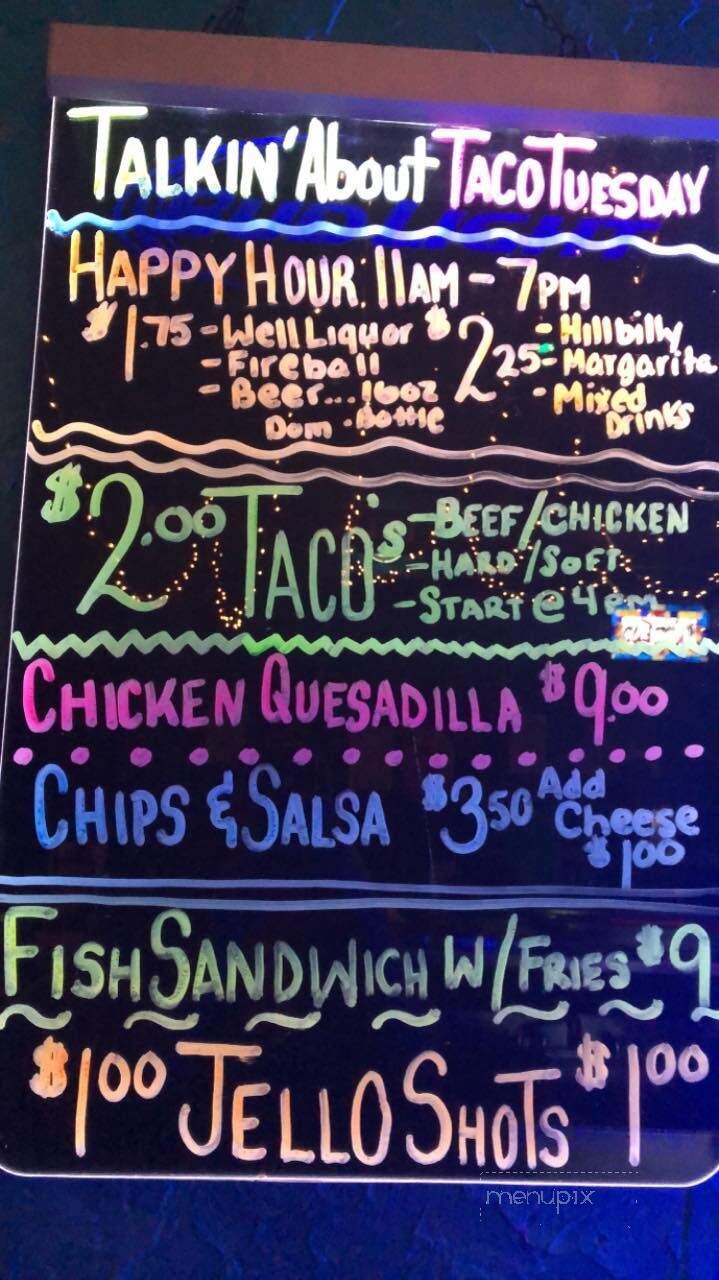 TALKIN' About TACO TUESDAY
HAPPY HOUR: 11AM - 7PM
$1.75 - Well Liquor $2.25 - Hillbilly
- Fireball - Margarita
- Beer... 16oz - Mixed
Dom. Bottle Drinks
$2.00 TACO'S - BEEF/CHICKEN
- HARD/SOFT
- START @ 4PM
CHICKEN QUESADILLA $9.00
CHIPS & SALSA $3.50 Add
Cheese
$1.00
FISH SANDWICH W/FRIES $9
$1.00 JELLO SHOTS $1.00
menupix